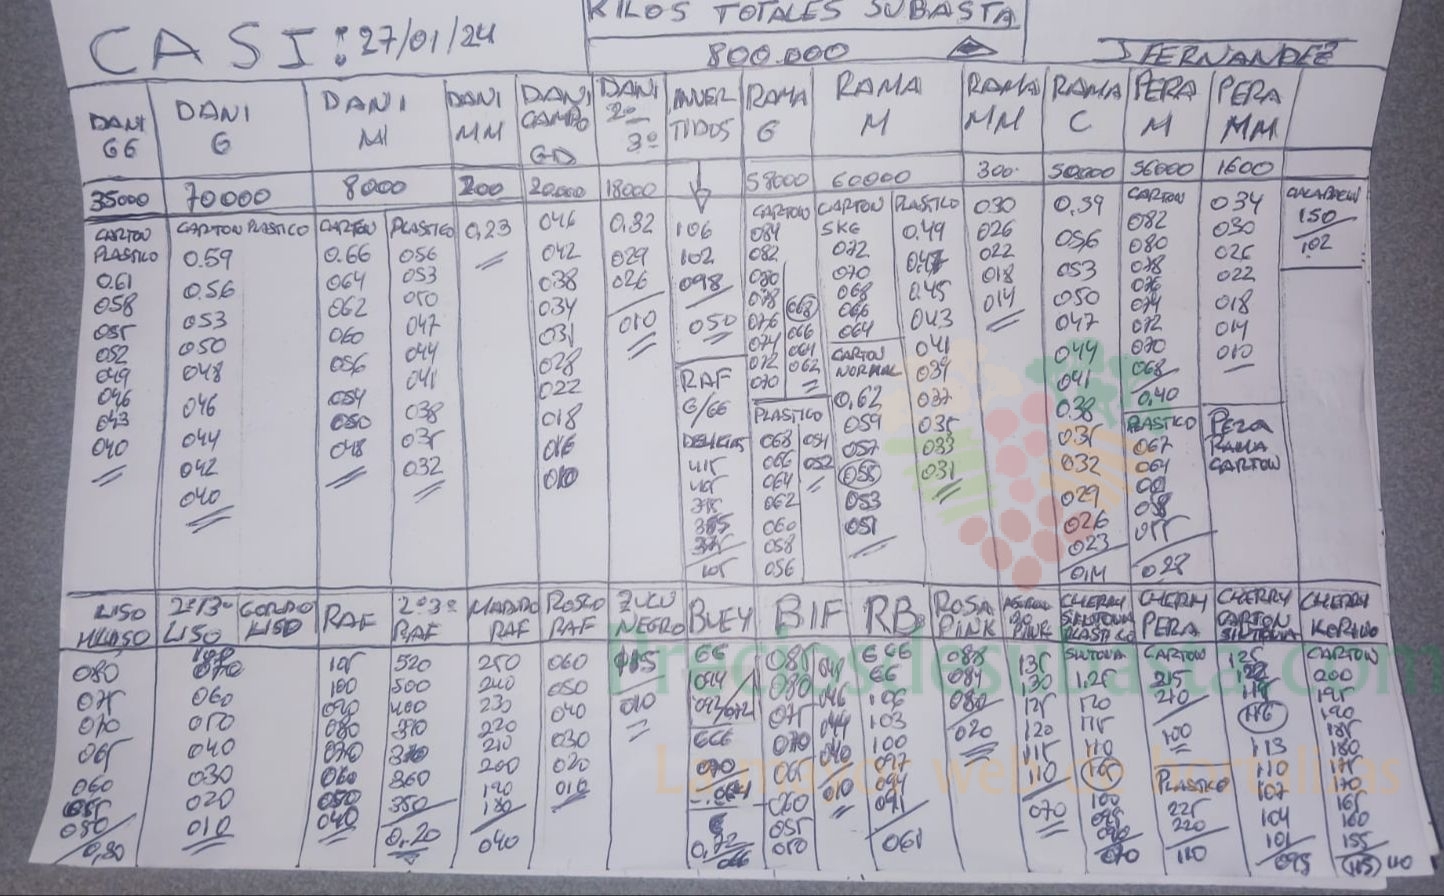 KILOS TOTALES SUBASTA
CASI: 27/01/24
800.000
J FERNANDEZ
DANI GG
DANI G
DANI M
DANI MM
DANI CAMPO GD
DANI 2º 3º
INVERTIDOS
RAMA G
RAMA M
RAMA MM
RAMA C
PERA M
PERA MM
35000
70000
8000
200
20.000
18000
58000
60000
300
50000
56000
1600
CARTON PLASTICO
0.61
058
055
052
049
046
043
040
CARTON PLASTICO
0.59
0.56
053
050
048
046
044
042
040
CARTON
0.66
064
062
060
056
054
050
048
PLASTICO
056
053
050
047
044
041
038
035
032
0,23
046
042
038
034
031
028
022
018
016
010
0,32
029
026
010
106
102
098
050
RAF
G/GG
415
105
CARTON
084
082
080
078
076
074
072
070
068
066
064
062
PLASTICO
068
066
064
062
060
058
056
054
052
CARTON
5KG
072
070
068
066
064
CARTON
NORMAL
0,62
059
057
055
053
051
PLASTICO
0.49
0.47
0.45
043
041
039
037
035
033
031
030
026
022
018
014
0,59
056
053
050
047
044
041
0.38
035
032
029
026
023
0,14
CARTON
082
080
078
076
074
072
070
068
0,40
PLASTICO
067
064
061
058
055
028
034
030
026
022
018
014
010
PERA
RAMA
CARTON
CALABACIN
150
102
LISO
2º/3º LISO
GORDO LISO
RAF
2º3º RAF
MADURO RAF
ROSCO RAF
ZULU NEGRO
BUEY
BIF
RB
ROSA PINK
PINK
CHERRY SINTONIA PLASTICO
CHERRY PERA
CHERRY CARTON SINTONIA
CHERRY KORALLO
080
075
070
065
060
055
050
0,30
060
050
040
030
020
010
105
100
090
080
070
060
050
040
520
500
400
390
360
350
0,20
250
240
230
220
210
200
190
180
040
060
050
040
030
020
010
010
GG
GGG
085
080
075
070
065
055
050
046
044
040
010
GGG
GG
106
103
100
097
094
091
061
088
084
080
020
135
130
125
120
115
110
070
SINTONIA
125
120
115
110
105
100
070
CARTON
215
210
100
PLASTICO
225
220
110
125
122
119
116
113
110
107
104
101
095
CARTON
200
195
190
185
180
175
170
165
160
155
110
Preciosdesubasta.com
La mayor web de hortalizas